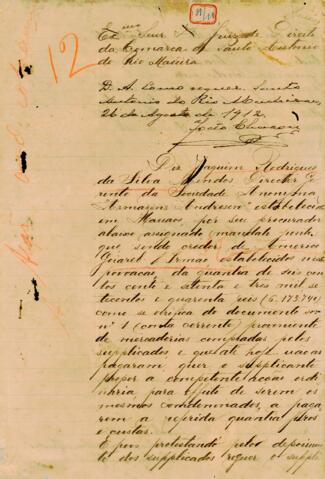 12
Ex.mo Snr Dr Juiz de Direito
da Comarca de Santo Antonio
do Rio Madeira
D. A. Como requer. Santo
Antonio do Rio Madeira,
26 de Agosto de 1912.
João Chacon
Diz Joaquim Rodrigues
da Silva Mendes Director Ge
rente da Sociedade Anonyma
"Armazens Andresen" estabelecida
em Manaos, por seu procurador
abaixo assignado (mandato junto)
que sendo credor de Americo
& Irmão estabelecidos nesta
povoação, da quantia de seis con
tos cento e setenta e tres mil se
tecentos e quarenta reis (6.173.740)
como se verifica do documento sob
nº 1 (conta corrente) proveniente
de mercadorias compradas pelos
supplicados e que até hoje não as
pagaram quer o supplicante
propor a competente acção ordi
naria para o fim de serem os
mesmos condemnados, a paga
rem a referida quantia juros
e custas.
E pois protestando pelo depoimen
to dos supplicados requer o suppli